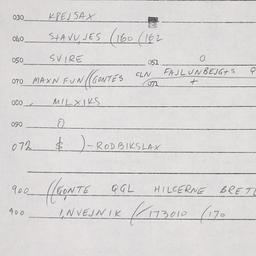 030 KPEJSAX
040 STAVUJES (160 (162
050 SVIRE 051 O
070 MAXN FUN((GONTES CLN FAJLUNBEJGTS
071 +
080 MILXIKS
090
072 $ )-RODBIKSLAX
900 ((GONTE GGL HILCERNE BRETE
900 INVEJNIK (173010 (170